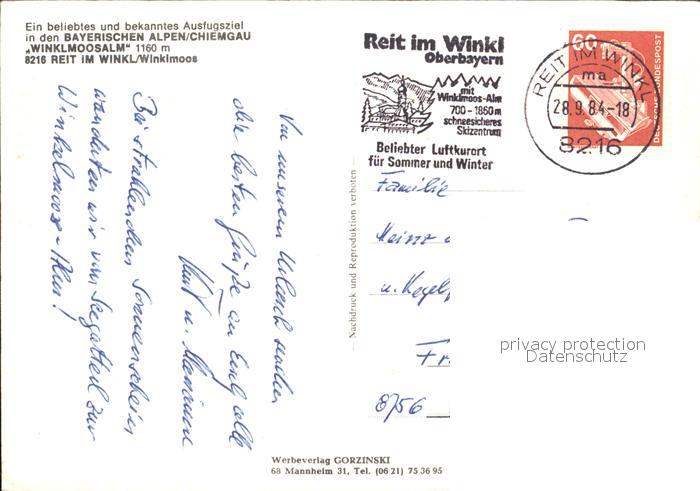 Ein beliebtes und bekanntes Ausfugsziel
in den BAYERISCHEN ALPEN/CHIEMGAU
„WINKLMOOSALM" 1160 m
8216 REIT IM WINKL/Winklmoos
Von unserem Urlaub senden
die besten Grüße an Euch alle
Kurt u. Marianne
Bei strahlendem Sonnenschein
wanderten wir von Seegatterl zur
Winkelmoos-Alm!
Reit im Winkl
Oberbayern
mit
Winklmoos-Alm
700-1860m
schneesicheres
Skizentrum
Beliebter Luftkurort
für Sommer und Winter
REIT IM WINKL
ma
28.9.84-18
8216
60
DEUTSCHE BUNDESPOST
Familie
Heinz
u.
Fr
8756
— Nachdruck und Reproduktion verboten —
privacy protection
Datenschutz
Werbeverlag GORZINSKI
68 Mannheim 31, Tel. (06 21) 75 36 95